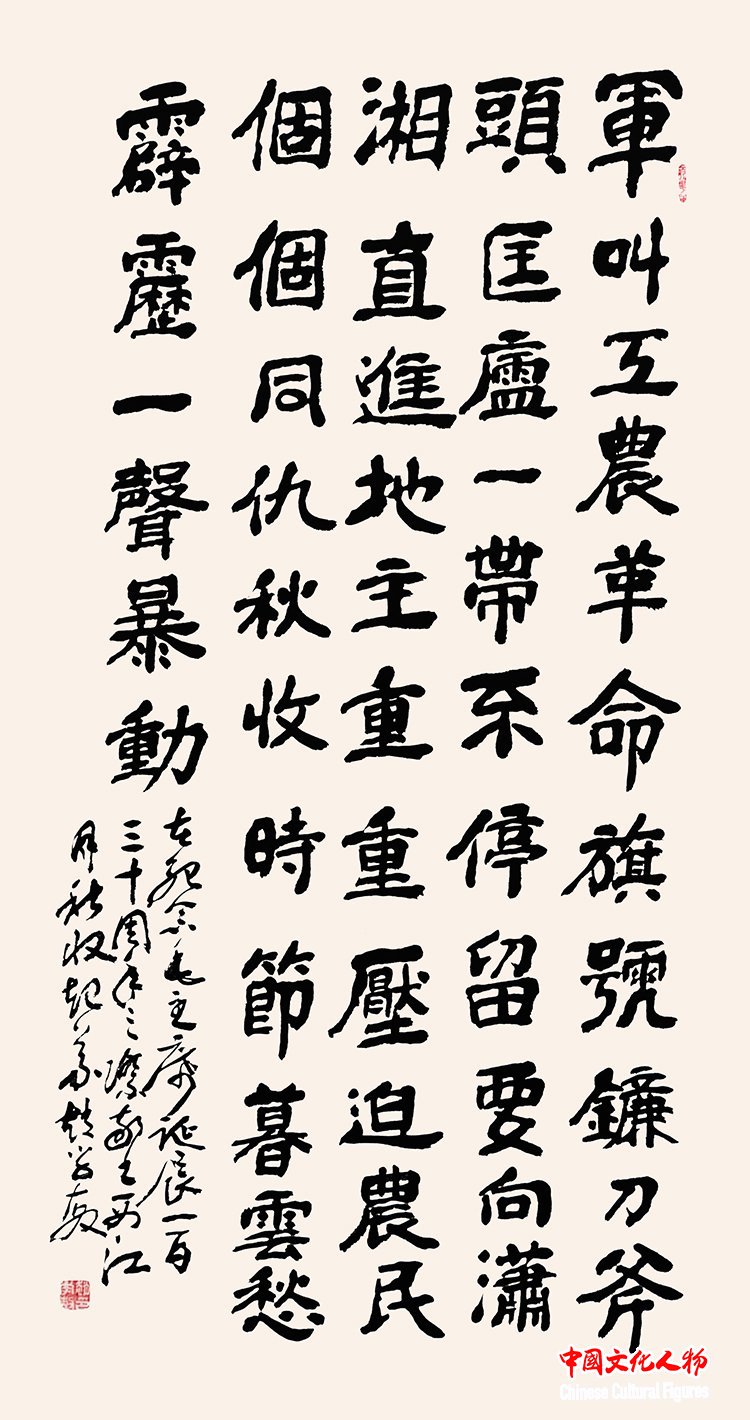 軍叫工農革命旗號鐮刀斧
頭匡廬一帶不停留要向瀟
湘直進地主重重壓迫農民
個個同仇秋收時節暮雲愁
霹靂一聲暴動
在紀念毛主席诞辰一百
三十周年之際敬书西江
月秋收起義趙学敏
中國文化人物
Chinese Cultural Figures